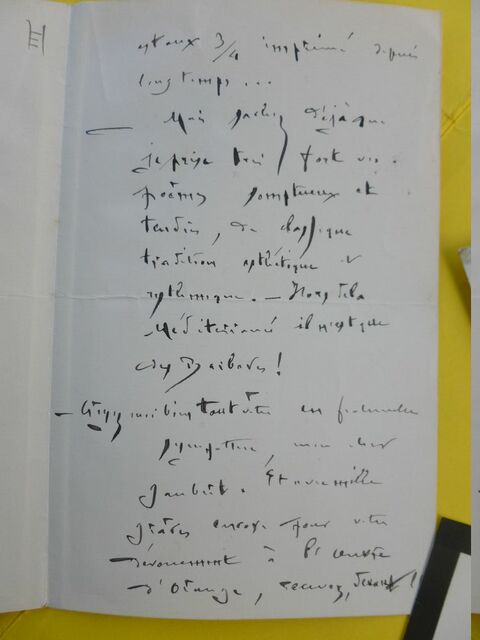 est aux 3/4 imprimé depuis
longtemps ...
— Mais sachez déjà que
je prise très fort vos
poèmes somptueux et
tendres, de classique
tradition esthétique et
rythmique. — Hors de la
Méditerranée il n'est que
des Barbares!
— Croyez moi bien tout vôtre en
sympathie, mon cher
Jaubert. Et mille
grâces encore pour votre
dévouement à l'œuvre
d'Orange,